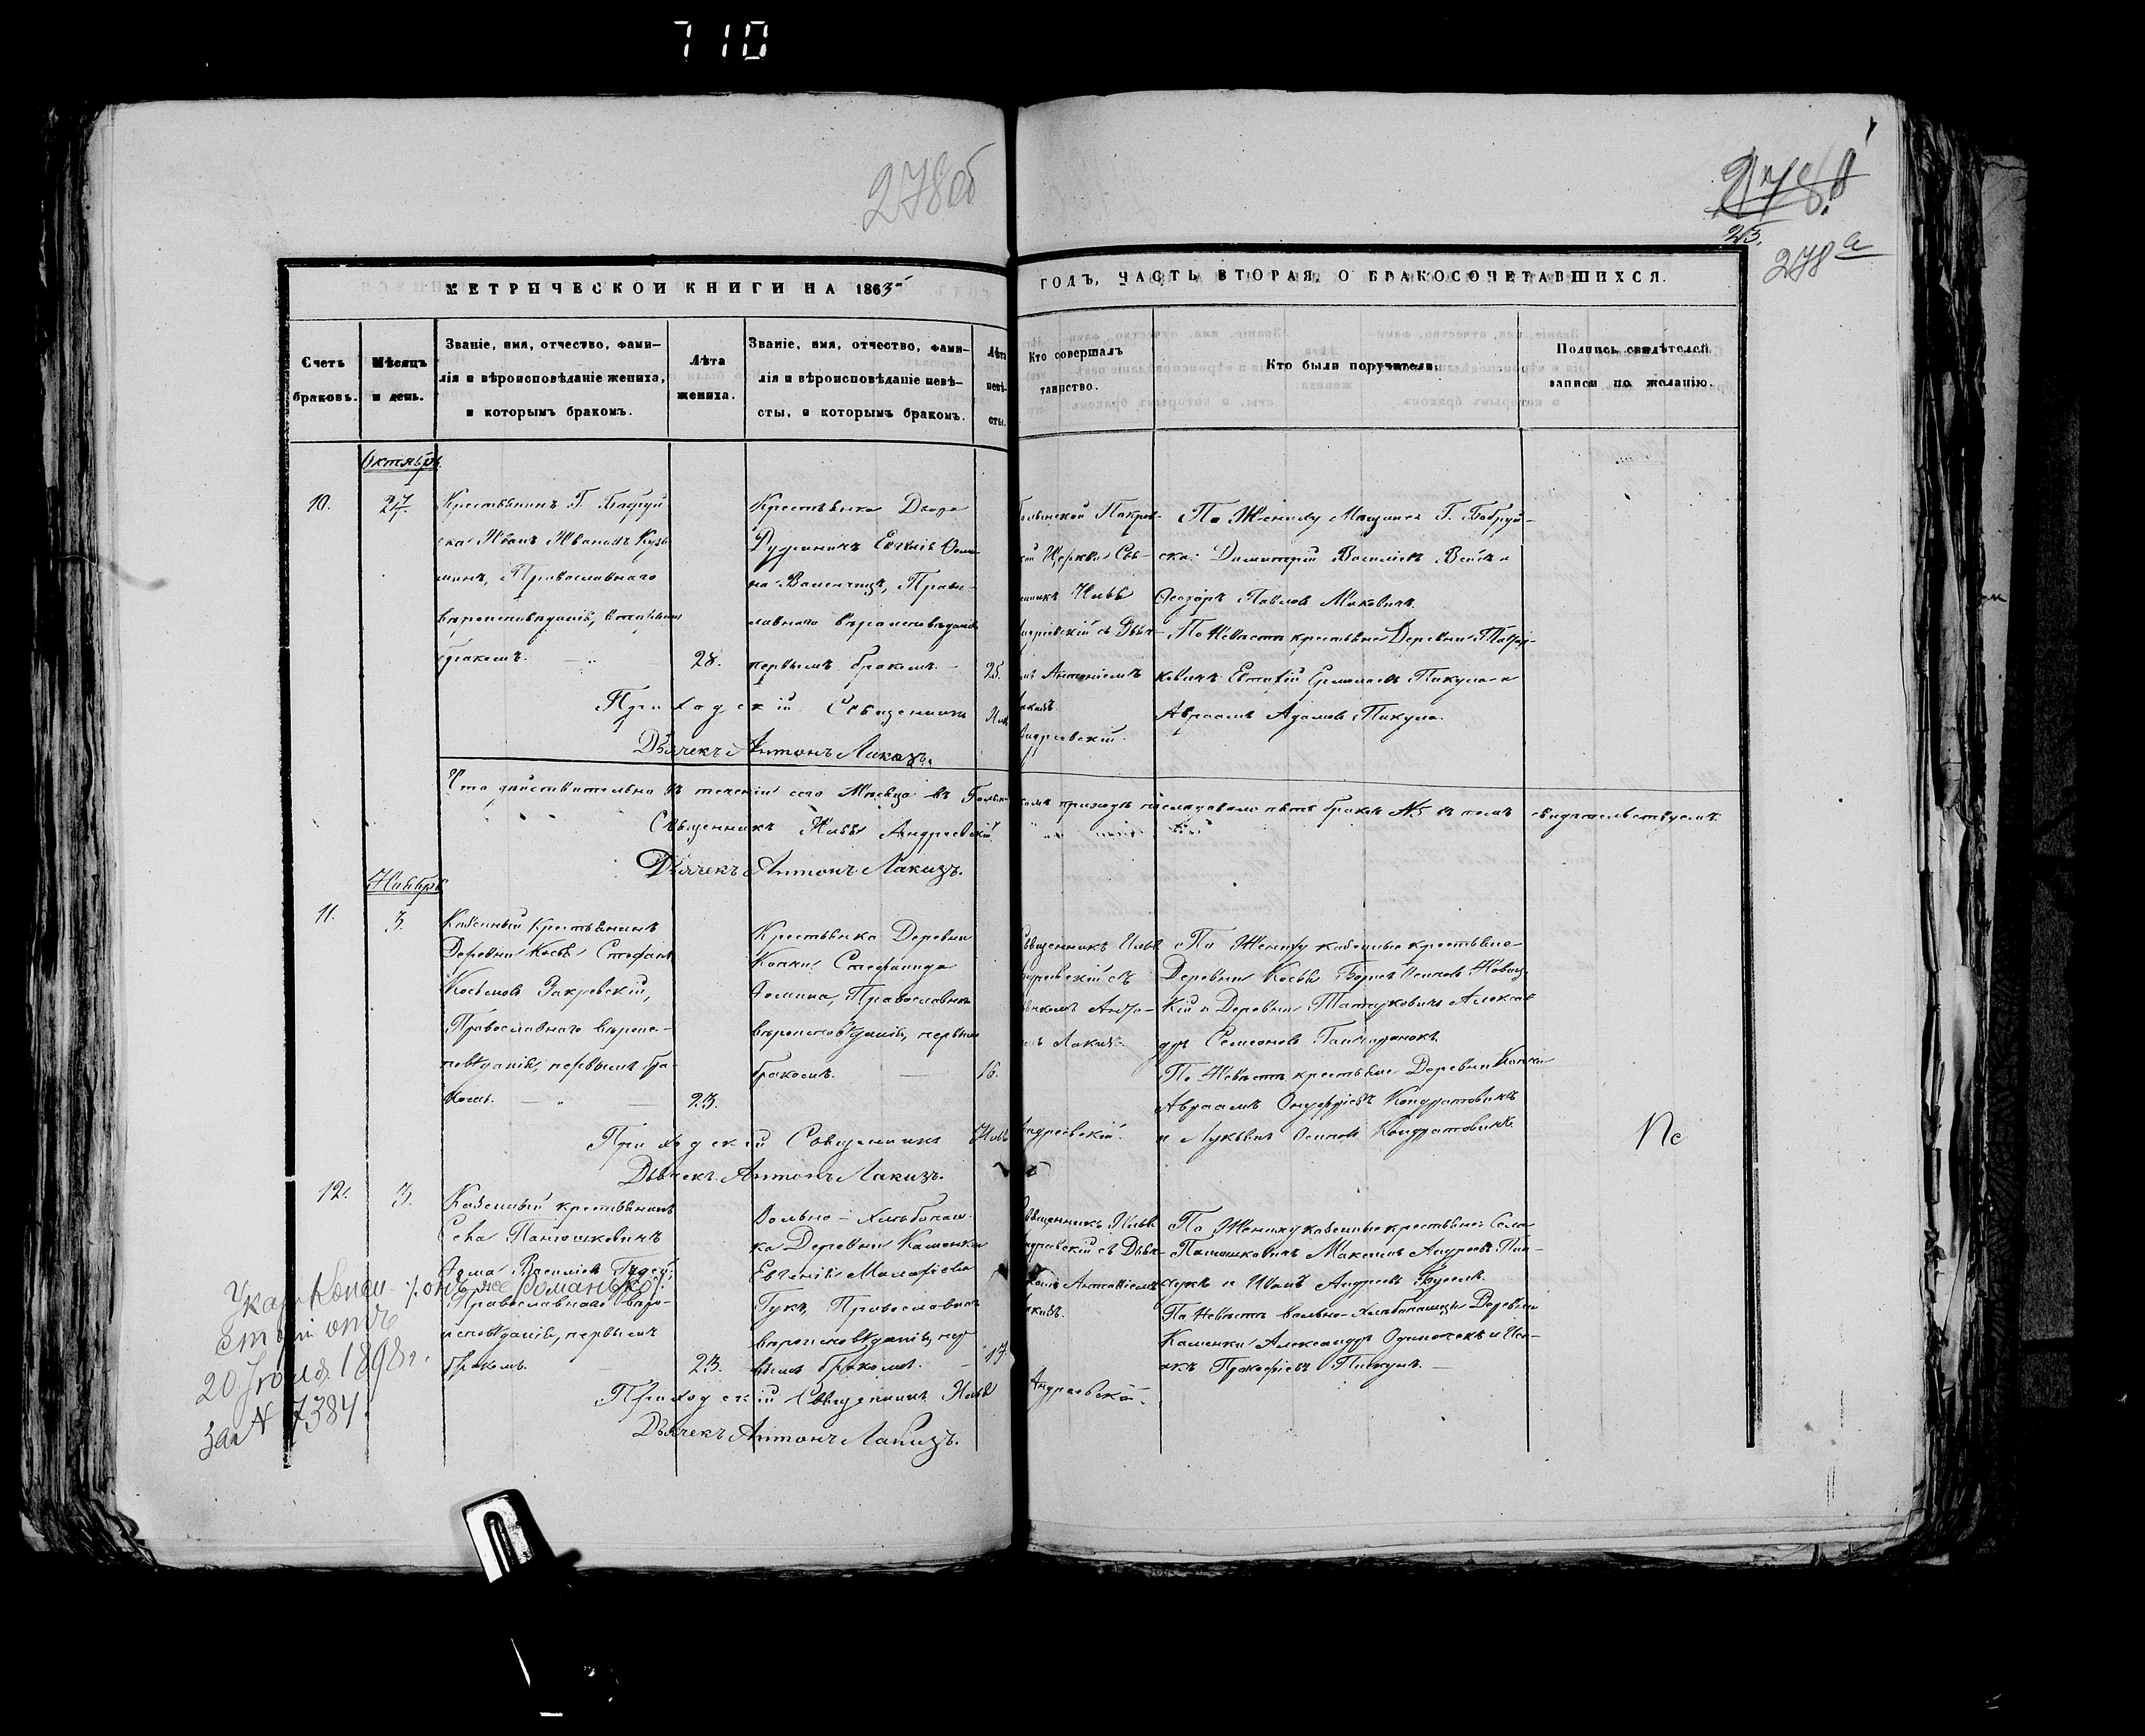 710
278об
278 б
23.
278 а
МЕТРИЧЕСКОЙ КНИГИ НА 1863й
ГОДЪ, ЧАСТЬ ВТОРАЯ, О БРАКОСОЧЕТАВШИХСЯ.
Счетъ
браковъ.
Мѣсяцъ
и день.
Званіе, имя, отчество, фами-
лія и вѣроисповѣданіе жениха,
и которымъ бракомъ.
Лѣта
жениха.
Званіе, имя, отчество, фами-
лія и вѣроисповѣданіе невѣ-
сты, и которымъ бракомъ.
Лѣта
невѣ-
сты.
Кто совершалъ
таинство.
Кто были поручители.
Подпись свидѣтелей
записи по желанію.
Октябрь
10.
27.
Крестьянинъ Г. Бобруй
ска Иванъ Ивановъ Кузь
минъ, Православнаго
вѣроисповѣданія, вторымъ
бракомъ.
28.
Крестьянка Двора
Евгенія Фоми
на Православнаго вѣроисповѣданія
первымъ бракомъ.
25.
Голынской Покров-
кой Церкви Свя-
щенникъ Илья
Андреевскій съ Дьяч-
мъ Антоніемъ
Лакизъ.
По Жениху Мѣщане Г. Бобруй-
ска: Димитрій Васильевъ и
Феодоръ Павловъ Макович.
По Невѣстѣ крестьяне Деревни
ковичъ Евтихій Ермолаевъ Пикула и
Авраамъ Адамовъ Пикула.
Приходскій Священникъ Илья Андреевскій.
Дьячекъ Антонъ Лакизъ.
Что дѣйствительно въ теченіи сего Мѣсяца въ Голын-
скомъ приходѣ послѣдовало пять браковъ №5 въ томъ свидѣтельствуемъ.
Священникъ Илья Андреевскій.
Дьячекъ Антонъ Лакизъ.
Ноябрь
11.
3.
Казенный Крестьянинъ
Деревни Косьи Стефанъ
Закревскій,
Православнаго вѣроис-
повѣданія, первымъ бра-
комъ.
23.
Крестьянка Деревни
Копки Стефанида
Фомина, Православнаго
вѣроисповѣданія, первымъ
бракомъ.
16.
Священникъ Илья
Андреевскій съ
Дьячкомъ Анто-
емъ Лакизъ.
По Жениху казенные крестьяне
Деревни Косьи Борисъ Осиповъ Новиц-
кій и Деревни Алексан
дръ Семеоновъ
По Невѣстѣ крестьяне Деревни Копки
Авраамъ Онуфріевъ Кондратовичъ
и Лукьянъ Осиповъ Кондратовичъ
Nc
Приходскій Священникъ Илья Андреевскій.
Дьячекъ Антонъ Лакизъ.
12.
3.
Казенный крестьянинъ
Села
Фома Васильевъ
/: онъ же Романько :/
Православнаго вѣро-
исповѣданія, первымъ
бракомъ.
23.
Вольно-Хлѣбопаш-
ка Деревни Каменки
Евгенія Малафіева
Гукъ, Православнаго
вѣроисповѣданія, пер
вымъ бракомъ.
17.
Священникъ Илья
Андреевскій съ Дьяч-
комъ Антоніемъ
Лакизъ.
По Жениху казенные крестьяне: Села
Максимъ Андреевъ Пин-
чукъ и Иванъ Андреевъ Бусель.
По Невѣстѣ вольно-хлѣбопашцы Деревни
Каменки Александръ Одиночекъ и Иса-
акъ Прокофіевъ Пискунъ.
Приходскій Священникъ Илья Андреевскій.
Дьячекъ Антонъ Лакизъ.
Указъ Конси-
сторіи отъ
20 Іюля 1898 г.
за N 7384.